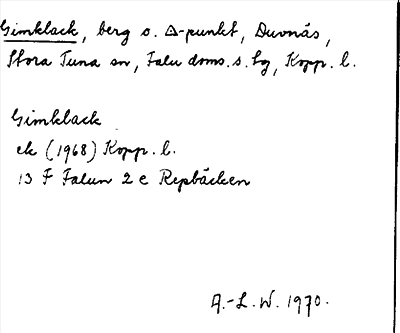 Gimklack, berg o. △-punkt, Duvnäs,
Stora Tuna sn, Falu doms. s. tg, Kopp. l.
Gimklack
ek (1968) Kopp. l.
13 F Falun 2 e Repbäcken
A.-L. W. 1970.